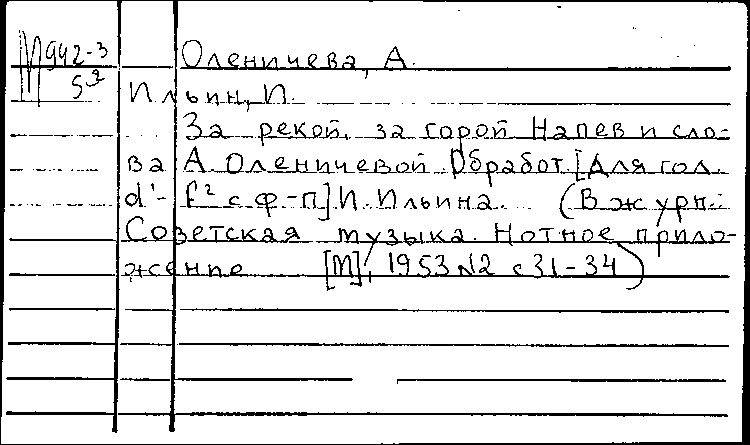 М 942-3
5
Оленичева, А.
Ильин, И.
За рекой, за горой Напев и сло-
ва А. Оленичевой. Обработ. [для гол.
d'- f² с ф.-п] И. Ильина. (В журн.:
Советская музыка. Нотное прило-
жение [М], 1953 №2 с 31-34)